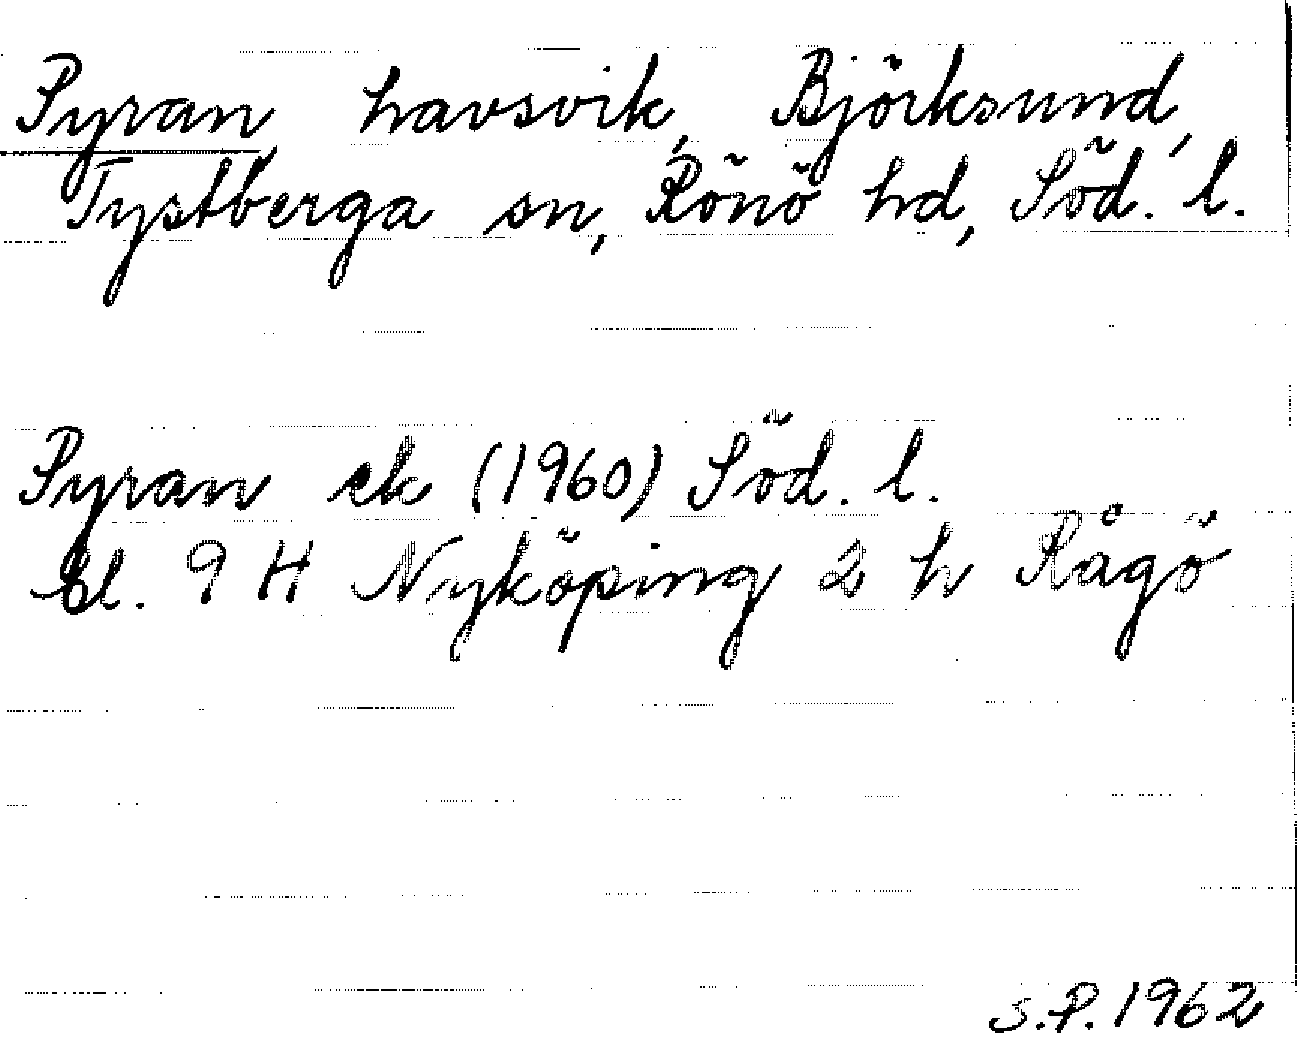 Pyran, havsvik, Björksund,
Tystberga sn, Rönö hd, Söd. l.
Pyran ek (1960) Söd. l.
bl. 9 H Nyköping 2 h Rågö
S.P. 1962